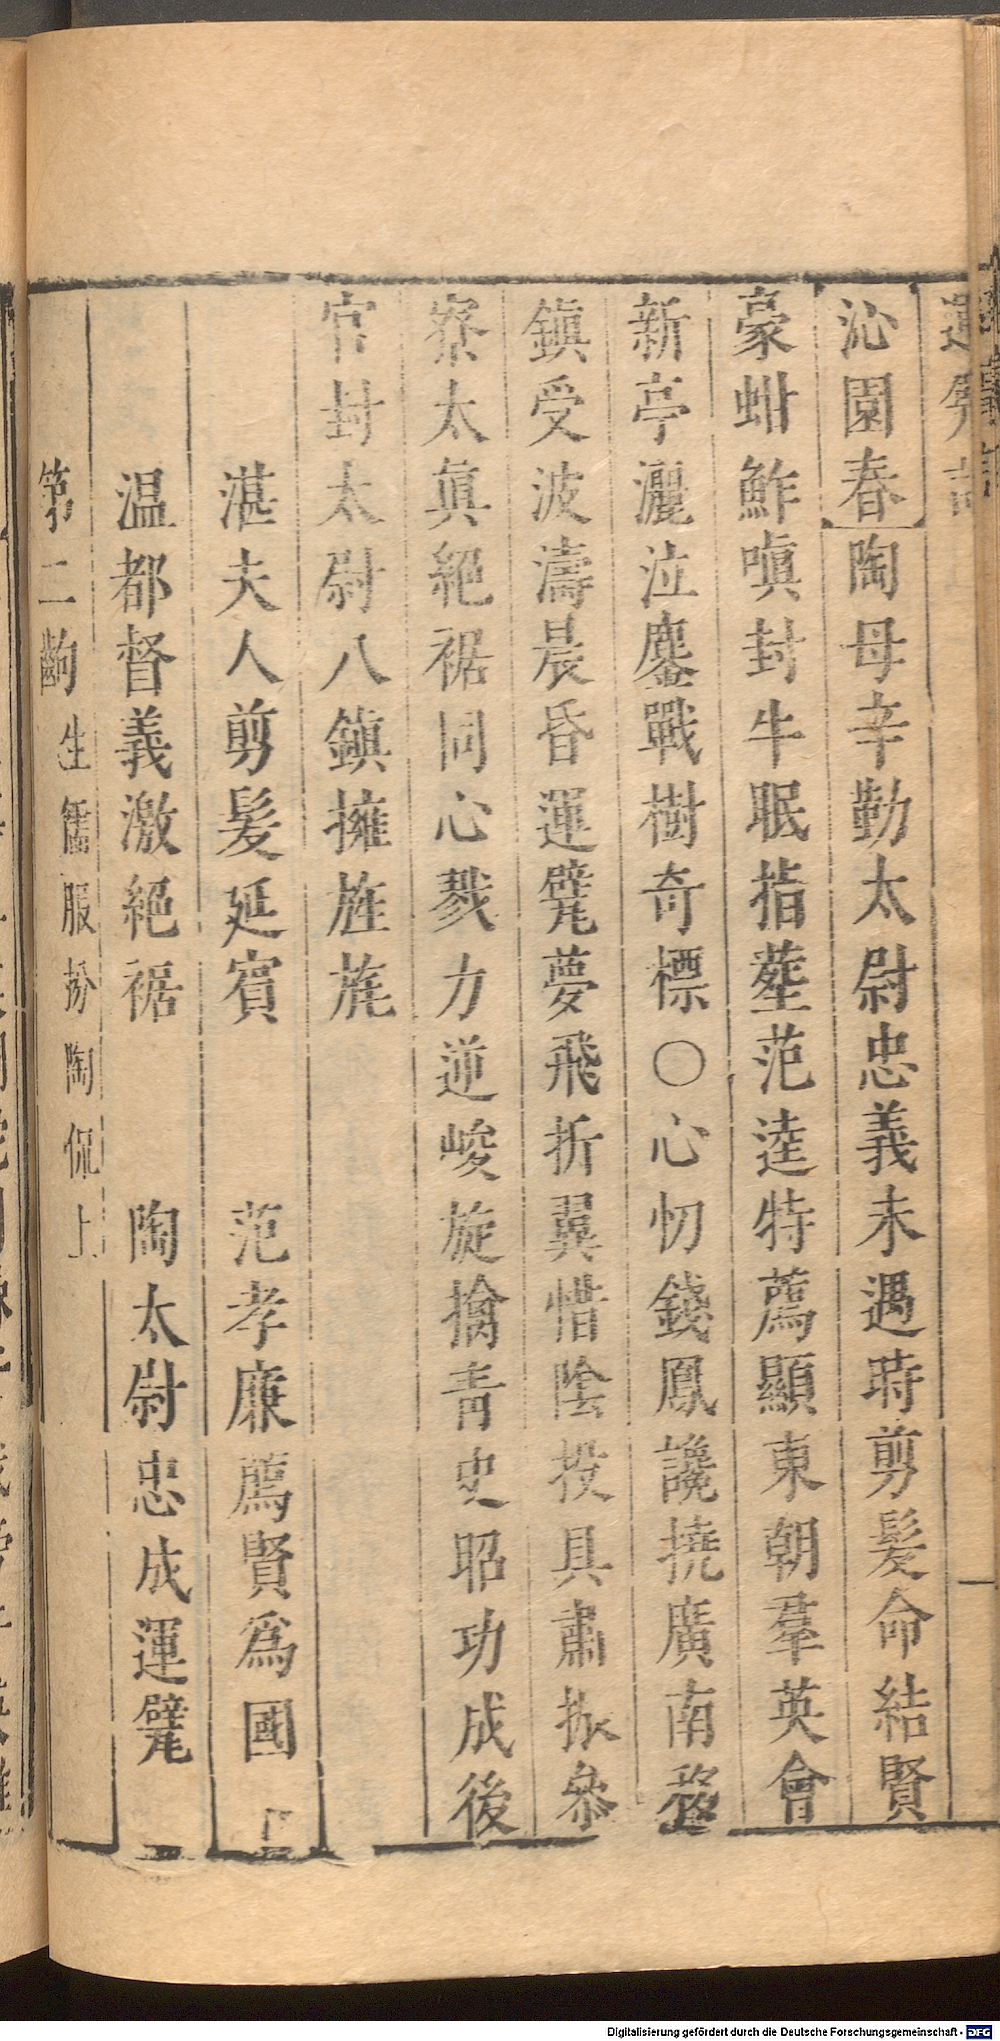 沁園春 陶母辛勤太尉忠義未遇時剪髮命結賢
豪蚶鮓嗔封牛眠指塟范逵特薦顯東朝羣英會
新亭灑泣鏖戰樹奇標〇心忉錢鳳讒撓廣南移
鎮受波濤晨昏運甓夢飛折翼惜陰投具肅振叅
寮太眞絕裾同心戮力逆峻旋擒靑史昭功成後
官封太尉八鎮擁旌旄
湛夫人剪髮延賓 范孝廉薦賢爲國
温都督義激絕裾 陶太尉忠成運甓
第二齣 生儒服扮陶侃上
Digitalisierung gefördert durch die Deutsche Forschungsgemeinschaft - DFG